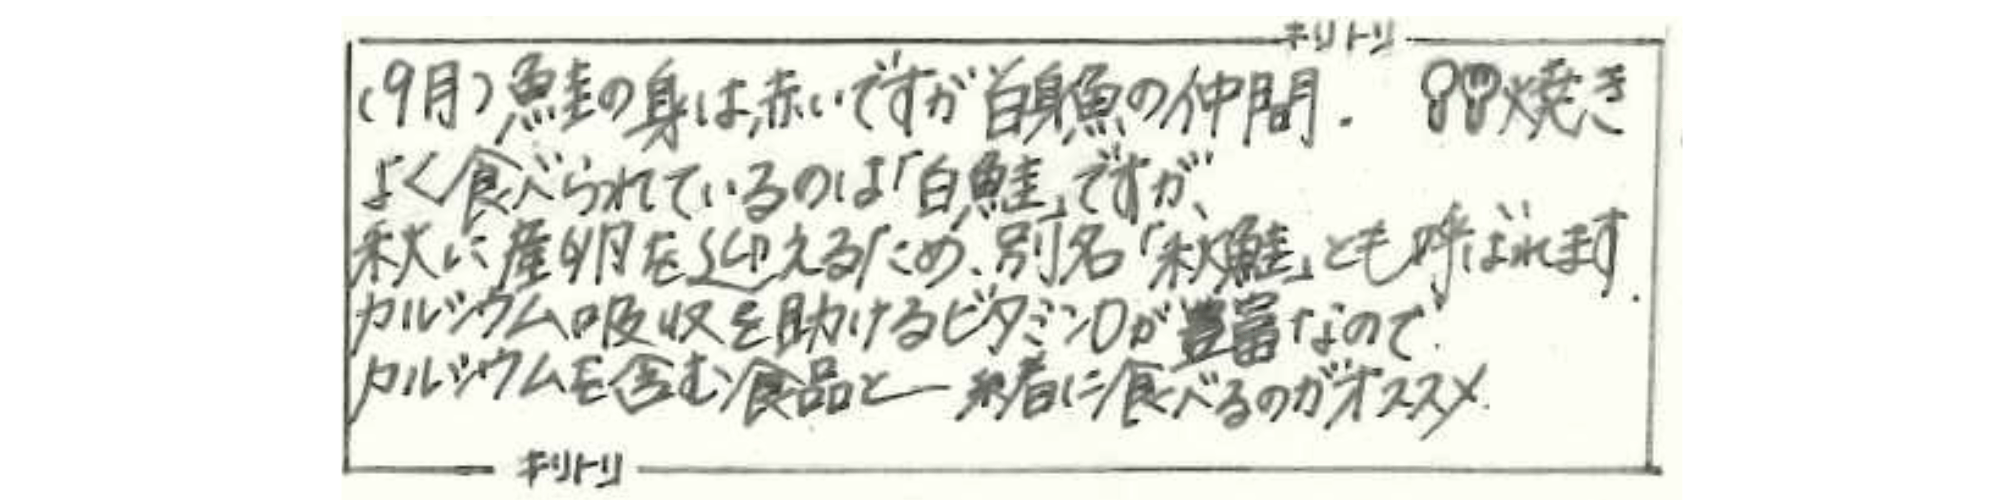 キリトリ
(9月)鮭の身は、赤いですが白身魚の仲間. 焼き
よく食べられているのは「白鮭」ですが、
秋に産卵を迎えるため、別名「秋鮭」とも呼ばれます.
カルシウム吸収を助けるビタミンDが豊富なので
カルシウムを含む食品と一緒に食べるのがオススメ.
キリトリ